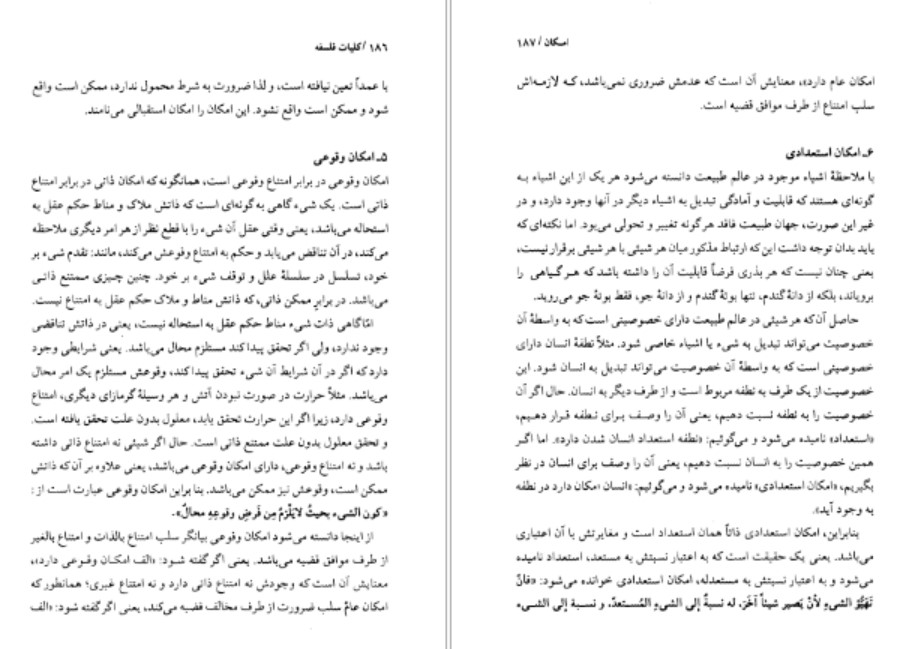 ۱۸۶ / کلیات فلسفه
یا عمداً تعین نیافته است، و لذا ضرورت به شرط محمول ندارد، ممکن است واقع
شود و ممکن است واقع نشود. این امکان را امکان استقبالی می‌نامند.
۵ـ امکان وقوعی
امکان وقوعی در برابر امتناع وقوعی است، همانگونه که امکان ذاتی در برابر امتناع
ذاتی است. یک شیء گاهی به گونه‌ای است که ذاتش ملاک و مناط حکم عقل به
استحاله می‌باشد، یعنی وقتی عقل آن شیء را با قطع نظر از هر امر دیگری ملاحظه
می‌کند، در آن تناقض می‌یابد و حکم به امتناع وقوعش می‌کند، مانند: تقدم شیء بر
خود، تسلسل در سلسلهٔ علل و توقف شیء بر خود. چنین چیزی ممتنع ذاتی
می‌باشد. در برابر ممکن ذاتی، که ذاتش مناط و ملاک حکم عقل به امتناع نیست.
امّا گاهی ذات شیء مناط حکم عقل به استحاله نیست، یعنی در ذاتش تناقضی
وجود ندارد، ولی اگر تحقق پیدا کند مستلزم محال می‌باشد. یعنی شرایطی وجود
دارد که اگر در آن شرایط آن شیء تحقق پیدا کند، وقوعش مستلزم یک امر محال
می‌باشد. مثلاً حرارت در صورت نبودن آتش و هر وسیلهٔ گرمازای دیگری، امتناع
وقوعی دارد، زیرا اگر این حرارت تحقق یابد، معلول بدون علت تحقق یافته است.
و تحقق معلول بدون علت ممتنع ذاتی است. حال اگر شیئی نه امتناع ذاتی داشته
باشد و نه امتناع وقوعی، دارای امکان وقوعی می‌باشد، یعنی علاوه بر آن که ذاتش
ممکن است، وقوعش نیز ممکن می‌باشد. بنا براین امکان وقوعی عبارت است از :
«کون الشیء بحیثُ لایَلْزَمُ مِن فَرضِ وقوعِهِ محالٌ».
از اینجا دانسته می‌شود امکان وقوعی بیانگر سلب امتناع بالذات و امتناع بالغیر
از طرف موافق قضیه می‌باشد. یعنی اگر گفته شود: «الف امکان وقوعی دارد»،
معنایش آن است که وجودش نه امتناع ذاتی دارد و نه امتناع غیری؛ همانطور که
امکان عام سلب ضرورت از طرف مخالف قضیه می‌کند، یعنی اگر گفته شود: «الف
امکان / ۱۸۷
امکان عام دارد»، معنایش آن است که عدمش ضروری نمی‌باشد، که لازمه‌اش
سلب امتناع از طرف موافق قضیه است.
۶ـ امکان استعدادی
با ملاحظهٔ اشیاء موجود در عالم طبیعت دانسته می‌شود هر یک از این اشیاء به
گونه‌ای هستند که قابلیت و آمادگی تبدیل به اشیاء دیگر در آنها وجود دارد، و در
غیر این صورت، جهان طبیعت فاقد هرگونه تغییر و تحولی می‌بود. اما نکته‌ای که
باید بدان توجه داشت این که ارتباط مذکور میان هر شیئی با هر شیئی برقرار نیست،
یعنی چنان نیست که هر بذری فرضاً قابلیت آن را داشته باشد که هر گیاهی را
برویاند، بلکه از دانهٔ گندم، تنها بوتهٔ گندم و از دانهٔ جو، فقط بوتهٔ جو می‌روید.
حاصل آن که هر شیئی در عالم طبیعت دارای خصوصیتی است که به واسطهٔ آن
خصوصیت می‌تواند تبدیل به شیء یا اشیاء خاصی شود. مثلاً نطفهٔ انسان دارای
خصوصیتی است که به واسطهٔ آن خصوصیت می‌تواند تبدیل به انسان شود. این
خصوصیت از یک طرف به نطفه مربوط است و از طرف دیگر به انسان. حال اگر آن
خصوصیت را به نطفه نسبت دهیم، یعنی آن را وصف برای نطفه قرار دهیم،
«استعداد» نامیده می‌شود و می‌گوئیم: «نطفه استعداد انسان شدن دارد». اما اگر
همین خصوصیت را به انسان نسبت دهیم، یعنی آن را وصف برای انسان در نظر
بگیریم، «امکان استعدادی» نامیده می‌شود و می‌گوئیم: «انسان امکان دارد در نطفه
به وجود آید».
بنابراین، امکان استعدادی ذاتاً همان استعداد است و مغایرتش با آن اعتباری
می‌باشد. یعنی یک حقیقت است که به اعتبار نسبتش به مستعد، استعداد نامیده
می‌شود و به اعتبار نسبتش به مستعدله، امکان استعدادی خوانده می‌شود: «فانّ
تَهَیُّؤَ الشیءِ لأنْ یَصیر شیئاً آخَرَ، له نسبةٌ إلی الشیءِ المُستعدّ، و نسبة إلی الشیء